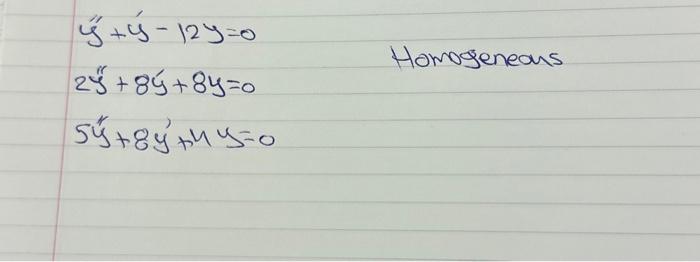 y″+y′-12y=0
Homogeneous
2y″+8y′+8y=0
5y″+8y′+4y=0